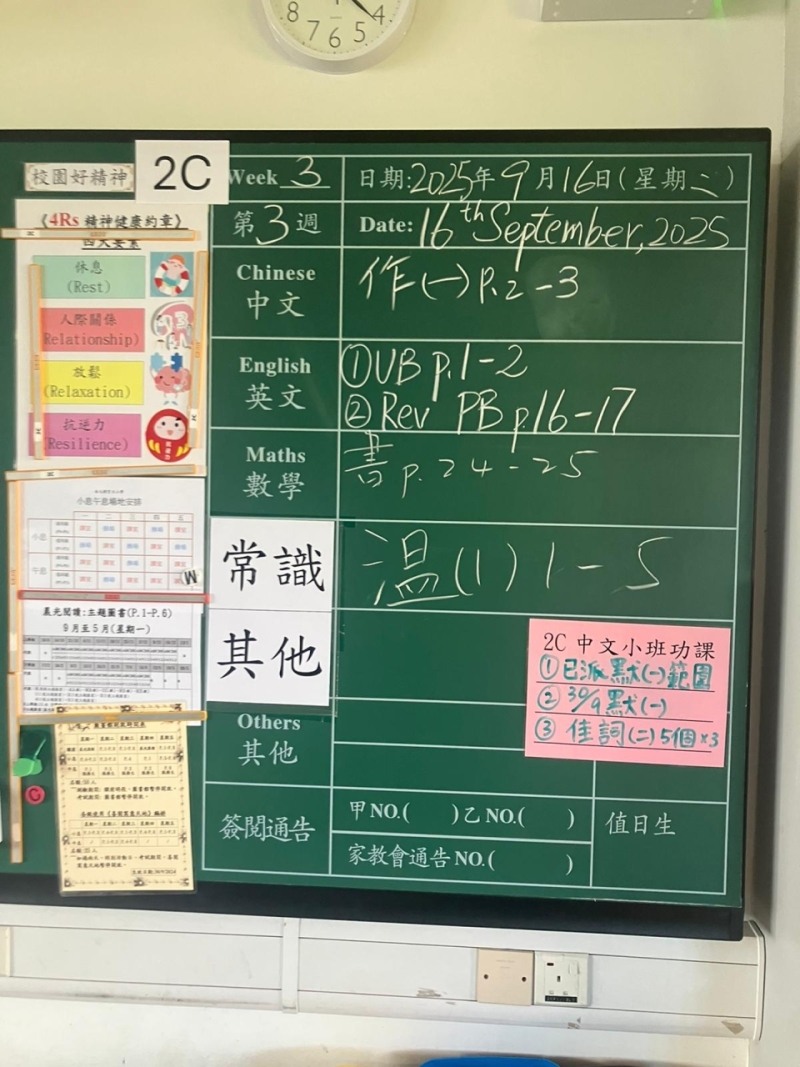 8 7 6 5 4
校園好精神
2C
Week 3
日期:2025年9月16日(星期二)
第3週
Date: 16th September, 2025
Chinese
中文
作(一) P.2-3
English
英文
①UB p.1-2
②Rev PB p.16-17
Maths
數學
書 p.24-25
常識
温(1) 1-5
其他
Others
其他
簽閱通告
甲NO.( )乙NO.( )
家教會通告NO.( )
值日生
2C 中文小班功課
①已派默(一)範圍
②30/9默(一)
③佳詞(二)5個×3
《4Rs 精神健康約章》
四大要素
休息
(Rest)
人際關係
(Relationship)
放鬆
(Relaxation)
抗逆力
(Resilience)
小息午息場地安排
一 二 三 四 五
小息
午息
W
晨光閱讀:主題圖書(P.1-P.6)
9月至5月(星期一)
C